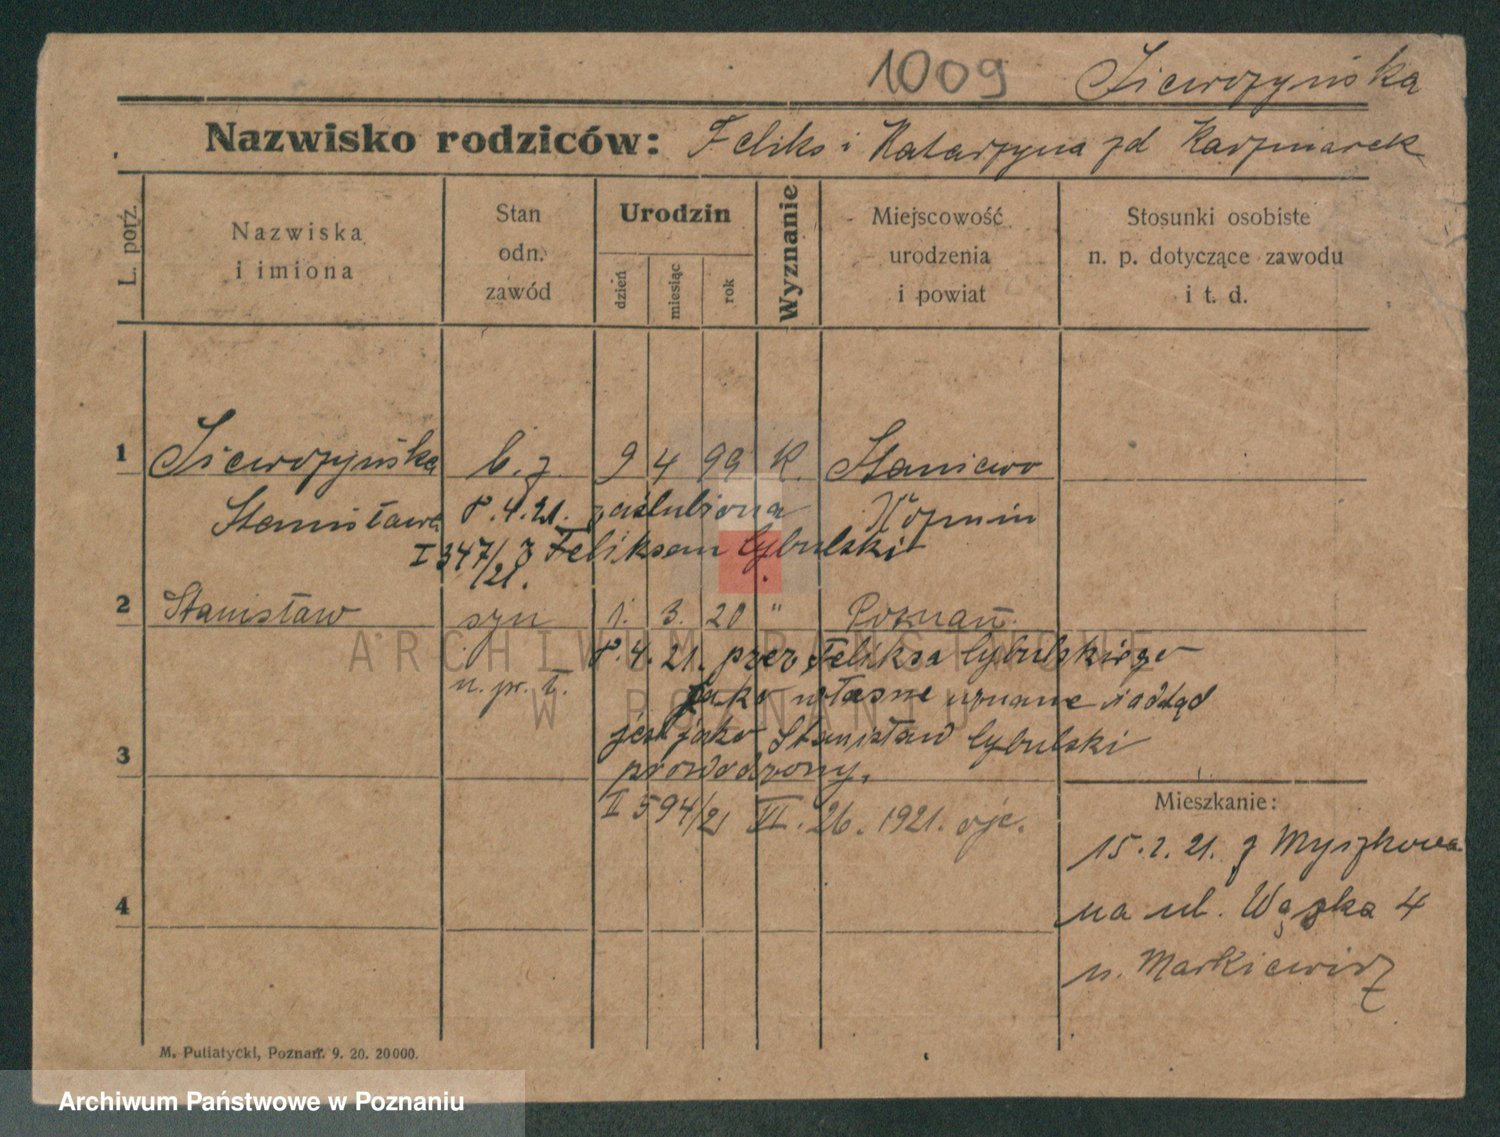 1009 Siewrzyńska
Nazwisko rodziców: Feliks i Katarzyna zd Kaczmarek
L. porz.
Nazwiska
i imiona
Stan
odn.
zawód
Urodzin
dzień
miesiąc
rok
Wyznanie
Miejscowość
urodzenia
i powiat
Stosunki osobiste
n. p. dotyczące zawodu
i t. d.
1 b. z. 9 4 99 K. Staniewo
Stanisława 8.4.21. zaślubiona Koźmin
I 347/21. z Feliksem Cybulski
2 Stanisław syn 1. 3. 20 " Poznań.
8.4.21. przez Feliksa Cybulskiego
n. pr. ł. jako własne uznane i odtąd
3 jest jako Stanisław Cybulski
prowadzony.
II 594/21 VI. 26. 1921. ojc.
Mieszkanie:
15.2.21. z Myszkowa
4 na ul. Wąska 4
u. Markiewicz
M. Putiatycki, Poznań. 9. 20. 20000.
ARCHIWUM PAŃSTWOWE
W POZNANIU
Archiwum Państwowe w Poznaniu